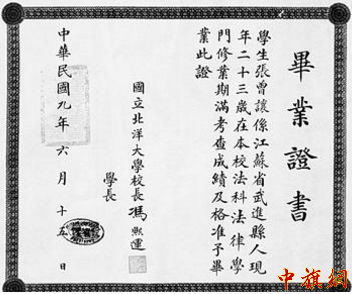 畢業證書
學生張曾讓係江蘇省武進縣人現
年二十三歲在本校法科法律學
門修業期滿考查成績及格准予畢
業此證
國立北洋大學校長馮熙運
學長
中華民國九年六月十五日
中旗網